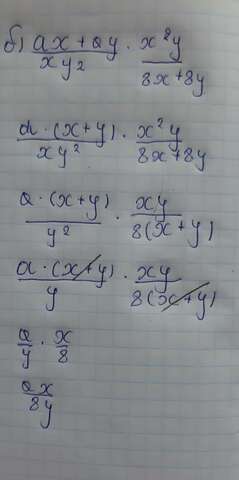 б) ax + ay / xy² · x²y / 8x+8y
a · (x+y) / xy² · x²y / 8x+8y
a · (x+y) / y² · xy / 8(x+y)
a · (x+y) / y · xy / 8(x+y)
a/y · x/8
ax/8y